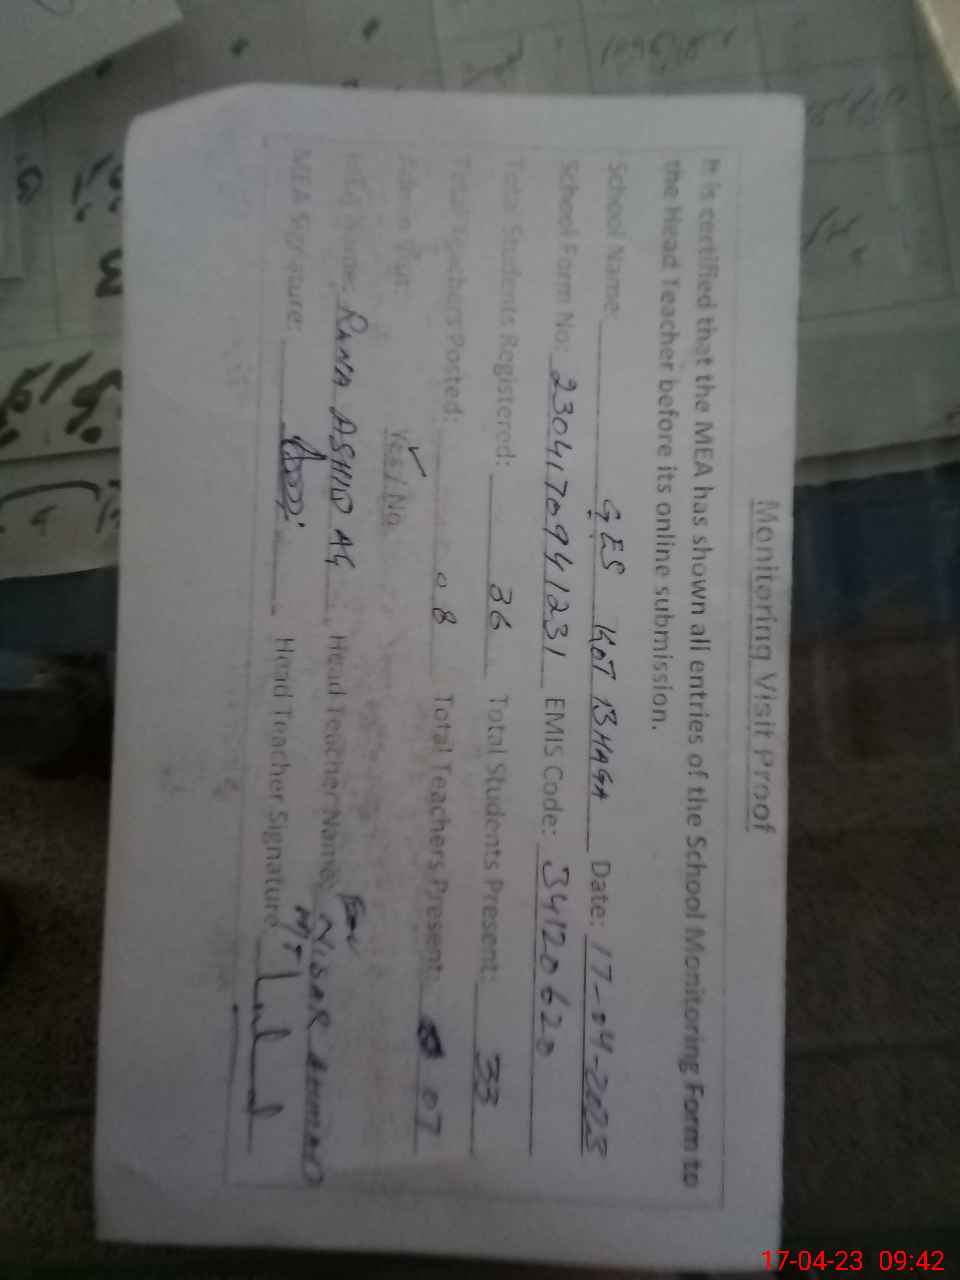 Monitoring Visit Proof
It is certified that the MEA has shown all entries of the School Monitoring Form to
the Head Teacher before its online submission.
School Name: GES KOT BHAGA Date: 17-04-2023
School Form No: 23041709941231 EMIS Code: 34120620
Total Students Registered: 36 Total Students Present: 33
Total Teachers Posted: 08 Total Teachers Present: 07
Admin Visit: Yes / No
MEA Name: RANA ASHID Head Teacher Name: For NISAR AHMAD
MEA Signature: Head Teacher Signature
17-04-23 09:42